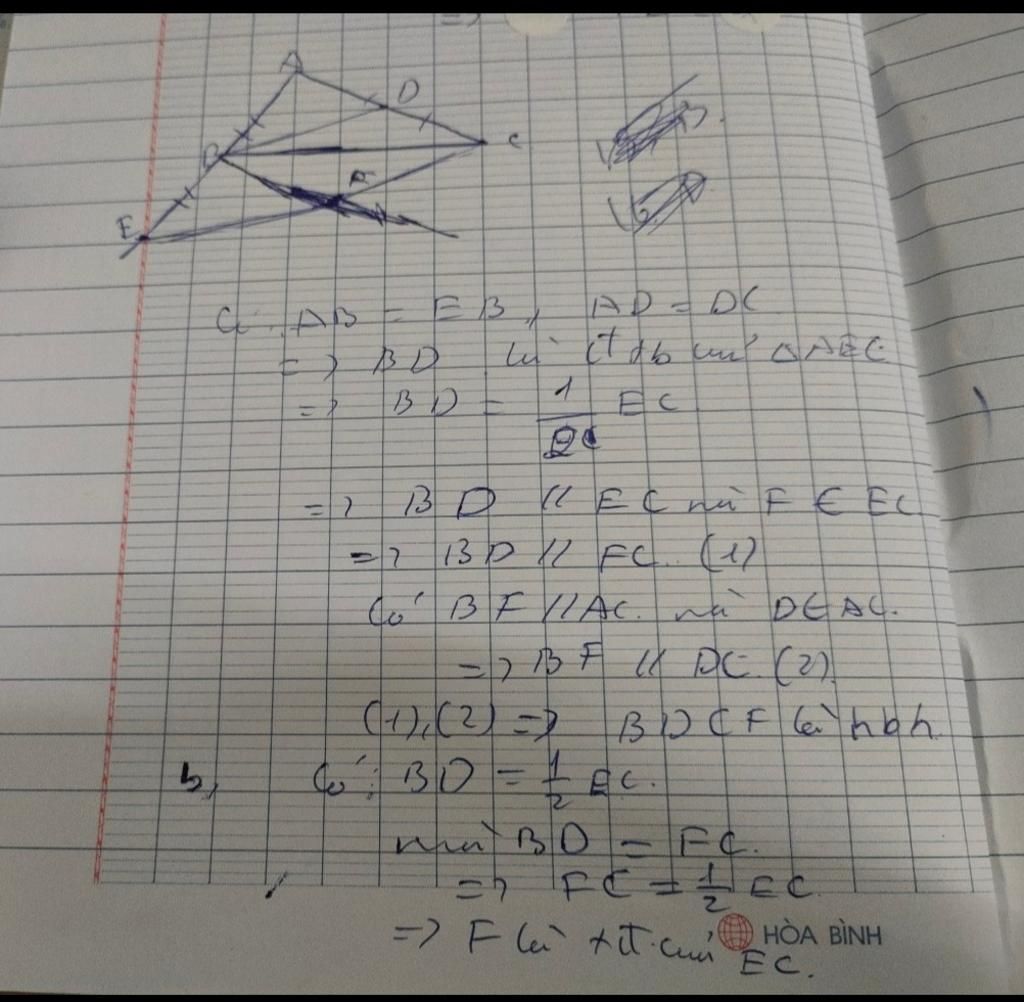 A
D
B
C
F
E
a. AB = EB, AD = DC
=> BD là đtb của △AEC
=> BD = 1/2 EC
=> BD // EC mà F ∈ EC
=> BD // FC. (1)
Có BF // AC. mà D ∈ AC.
=> BF // DC. (2)
(1), (2) => BDCF là hbh.
b, Có: BD = 1/2 EC.
mà BD = FC.
=> FC = 1/2 EC.
=> F là tđ của EC.
HÒA BÌNH